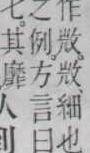 作𢼸。𢼸、細也
之例。方言曰
七。其靡人